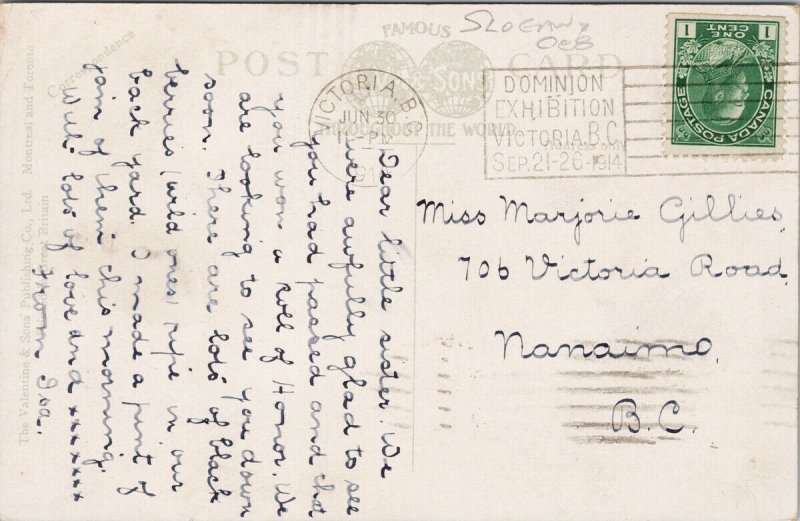 SLOGAN
FAMOUS
POST CARD
& SONS
THROUGHOUT THE WORLD
VICTORIA, B.C.
JUN 30
PM
191
DOMINION
EXHIBITION
VICTORIA, B.C.
SEP. 21-26-1914
1 ONE CENT 1
CANADA POSTAGE
Miss Marjorie Gillies,
706 Victoria Road,
Nanaimo,
B.C.
Correspondence
Dear little sister. We
were awfully glad to see
you had passed and that
you won a Roll of Honor. We
are looking to see you down
soon. There are lots of black
berries (wild ones) ripe in our
back yard. I made a pint of
jam of them this morning.
With lots of love and xxxxxx
from Iva.
The Valentine & Sons Publishing Co., Ltd. Montreal and Toronto
Britain